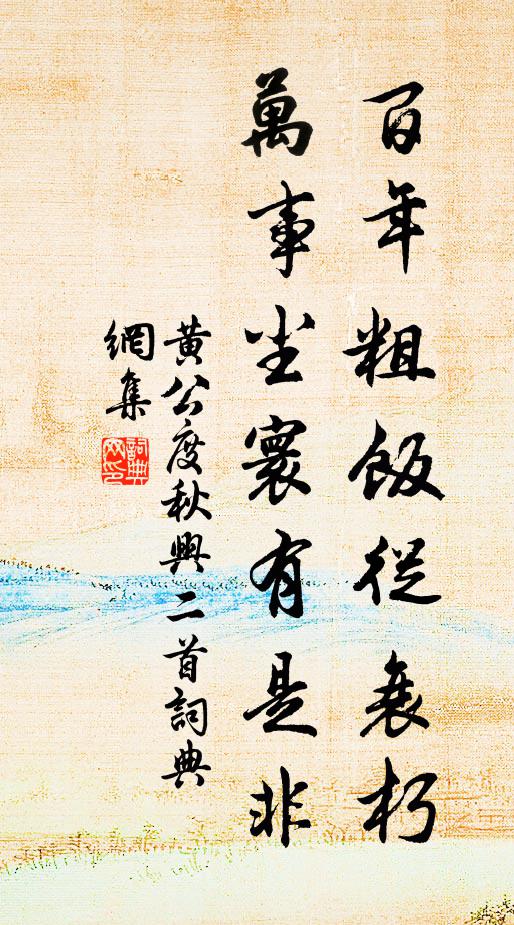 百年粗飯從衰朽
萬事尘寰有是非
黃公度秋興二首詞典
網集
詞典
网印